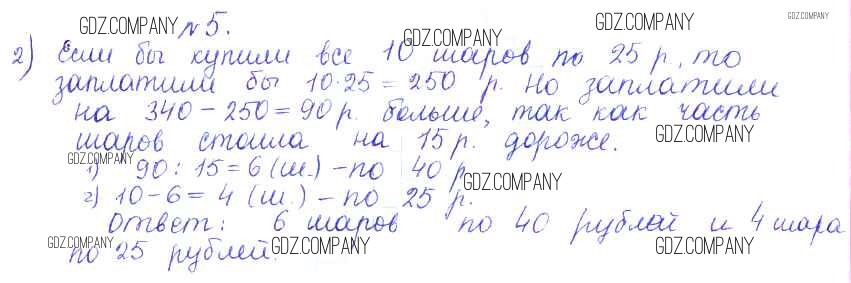 GDZ.COMPANY № 5. GDZ.COMPANY GDZ.COMPANY GDZ.COMPANY
2) Если бы купили все 10 шаров по 25 р, то
заплатили бы 10·25 = 250 р. Но заплатили
на 340 – 250 = 90 р. больше, так как часть
шаров стоила на 15 р. дороже. GDZ.COMPANY
GDZ.COMPANY
1) 90 : 15 = 6 (ш.) – по 40 р GDZ.COMPANY
2) 10 – 6 = 4 (ш.) – по 25 р.
Ответ: 6 шаров по 40 рублей и 4 шара
GDZ.COMPANY GDZ.COMPANY GDZ.COMPANY
по 25 рублей.